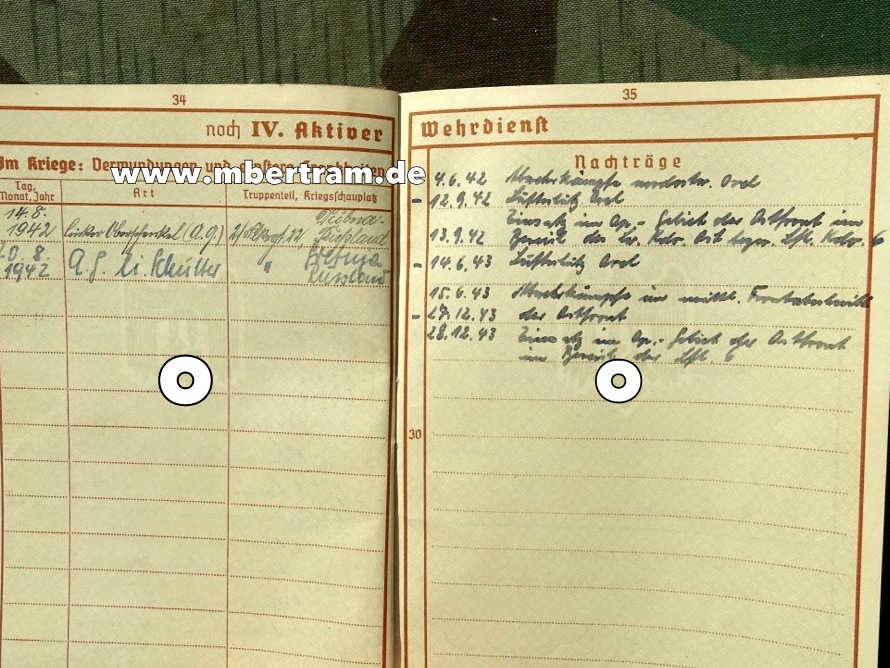 34
noch IV. Aktiver
Im Kriege: Verwundungen und ernstere Krankheiten
www.mbertram.de
Tag,
Monat, Jahr
Art
Truppenteil, Kriegsschauplatz
14.8.
1942 linker Oberschenkel (A.G.)
Rußland
8.
1942 A.G. li. Schulter "
Russland
35
Wehrdienst
Nachträge
4.6.42 Abwehrkämpfe nordostw. Orel
- 12.9.42 Luftschutz Orel
Einsatz im Op.- Gebiet der Ostfront im
13.9.42 Bereich des Lw. Kdo. Ost bezw. Lfl. Kdo. 6
- 14.6.43 Luftschutz Orel
15.6.43 Abwehrkämpfe im mittl. Frontabschnitt
- 27.12.43 der Ostfront
28.12.43 Einsatz im Op.- Gebiet der Ostfront
im Bereich der Lfl. 6
30